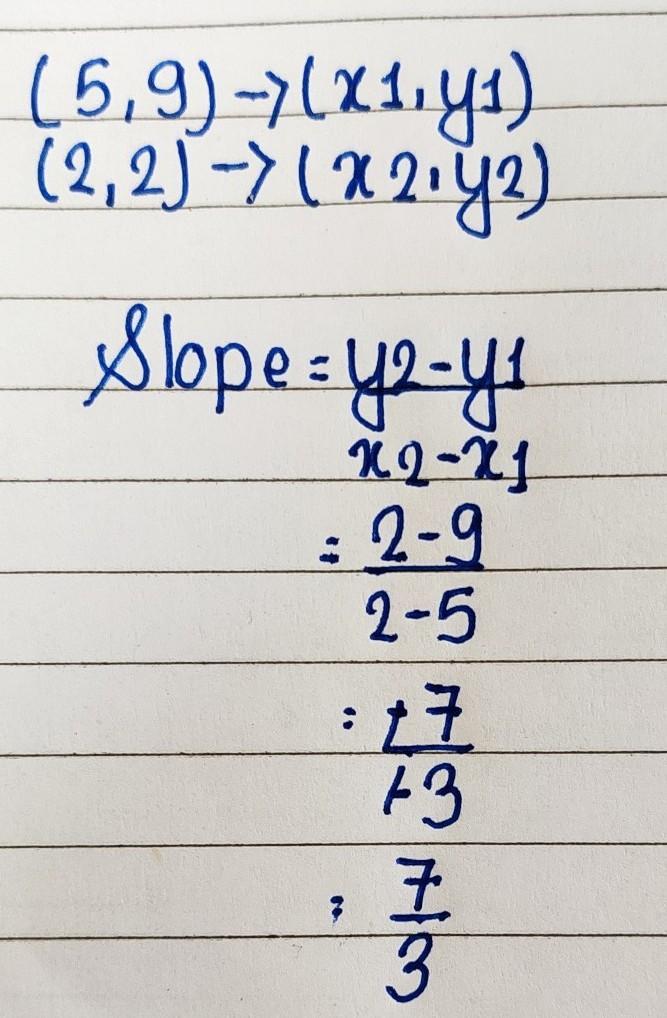 (5,9)->(x1,y1)
(2,2)->(x2,y2)
Slope = y2-y1
x2-x1
= 2-9
2-5
= -7
-3
= 7
3